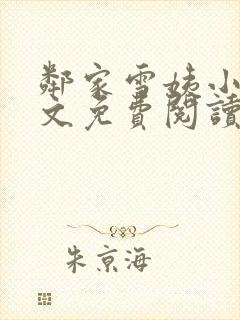 鄰家雪姨小
文免費閱讀
朱京海